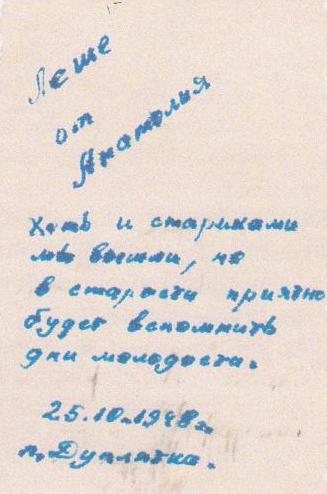 Леше
от
Анатолия
Хоть и стариками
мы но
в старости приятно
будет вспомнить
дни молодости.
25.10.1948г.
п. Дуплятка.